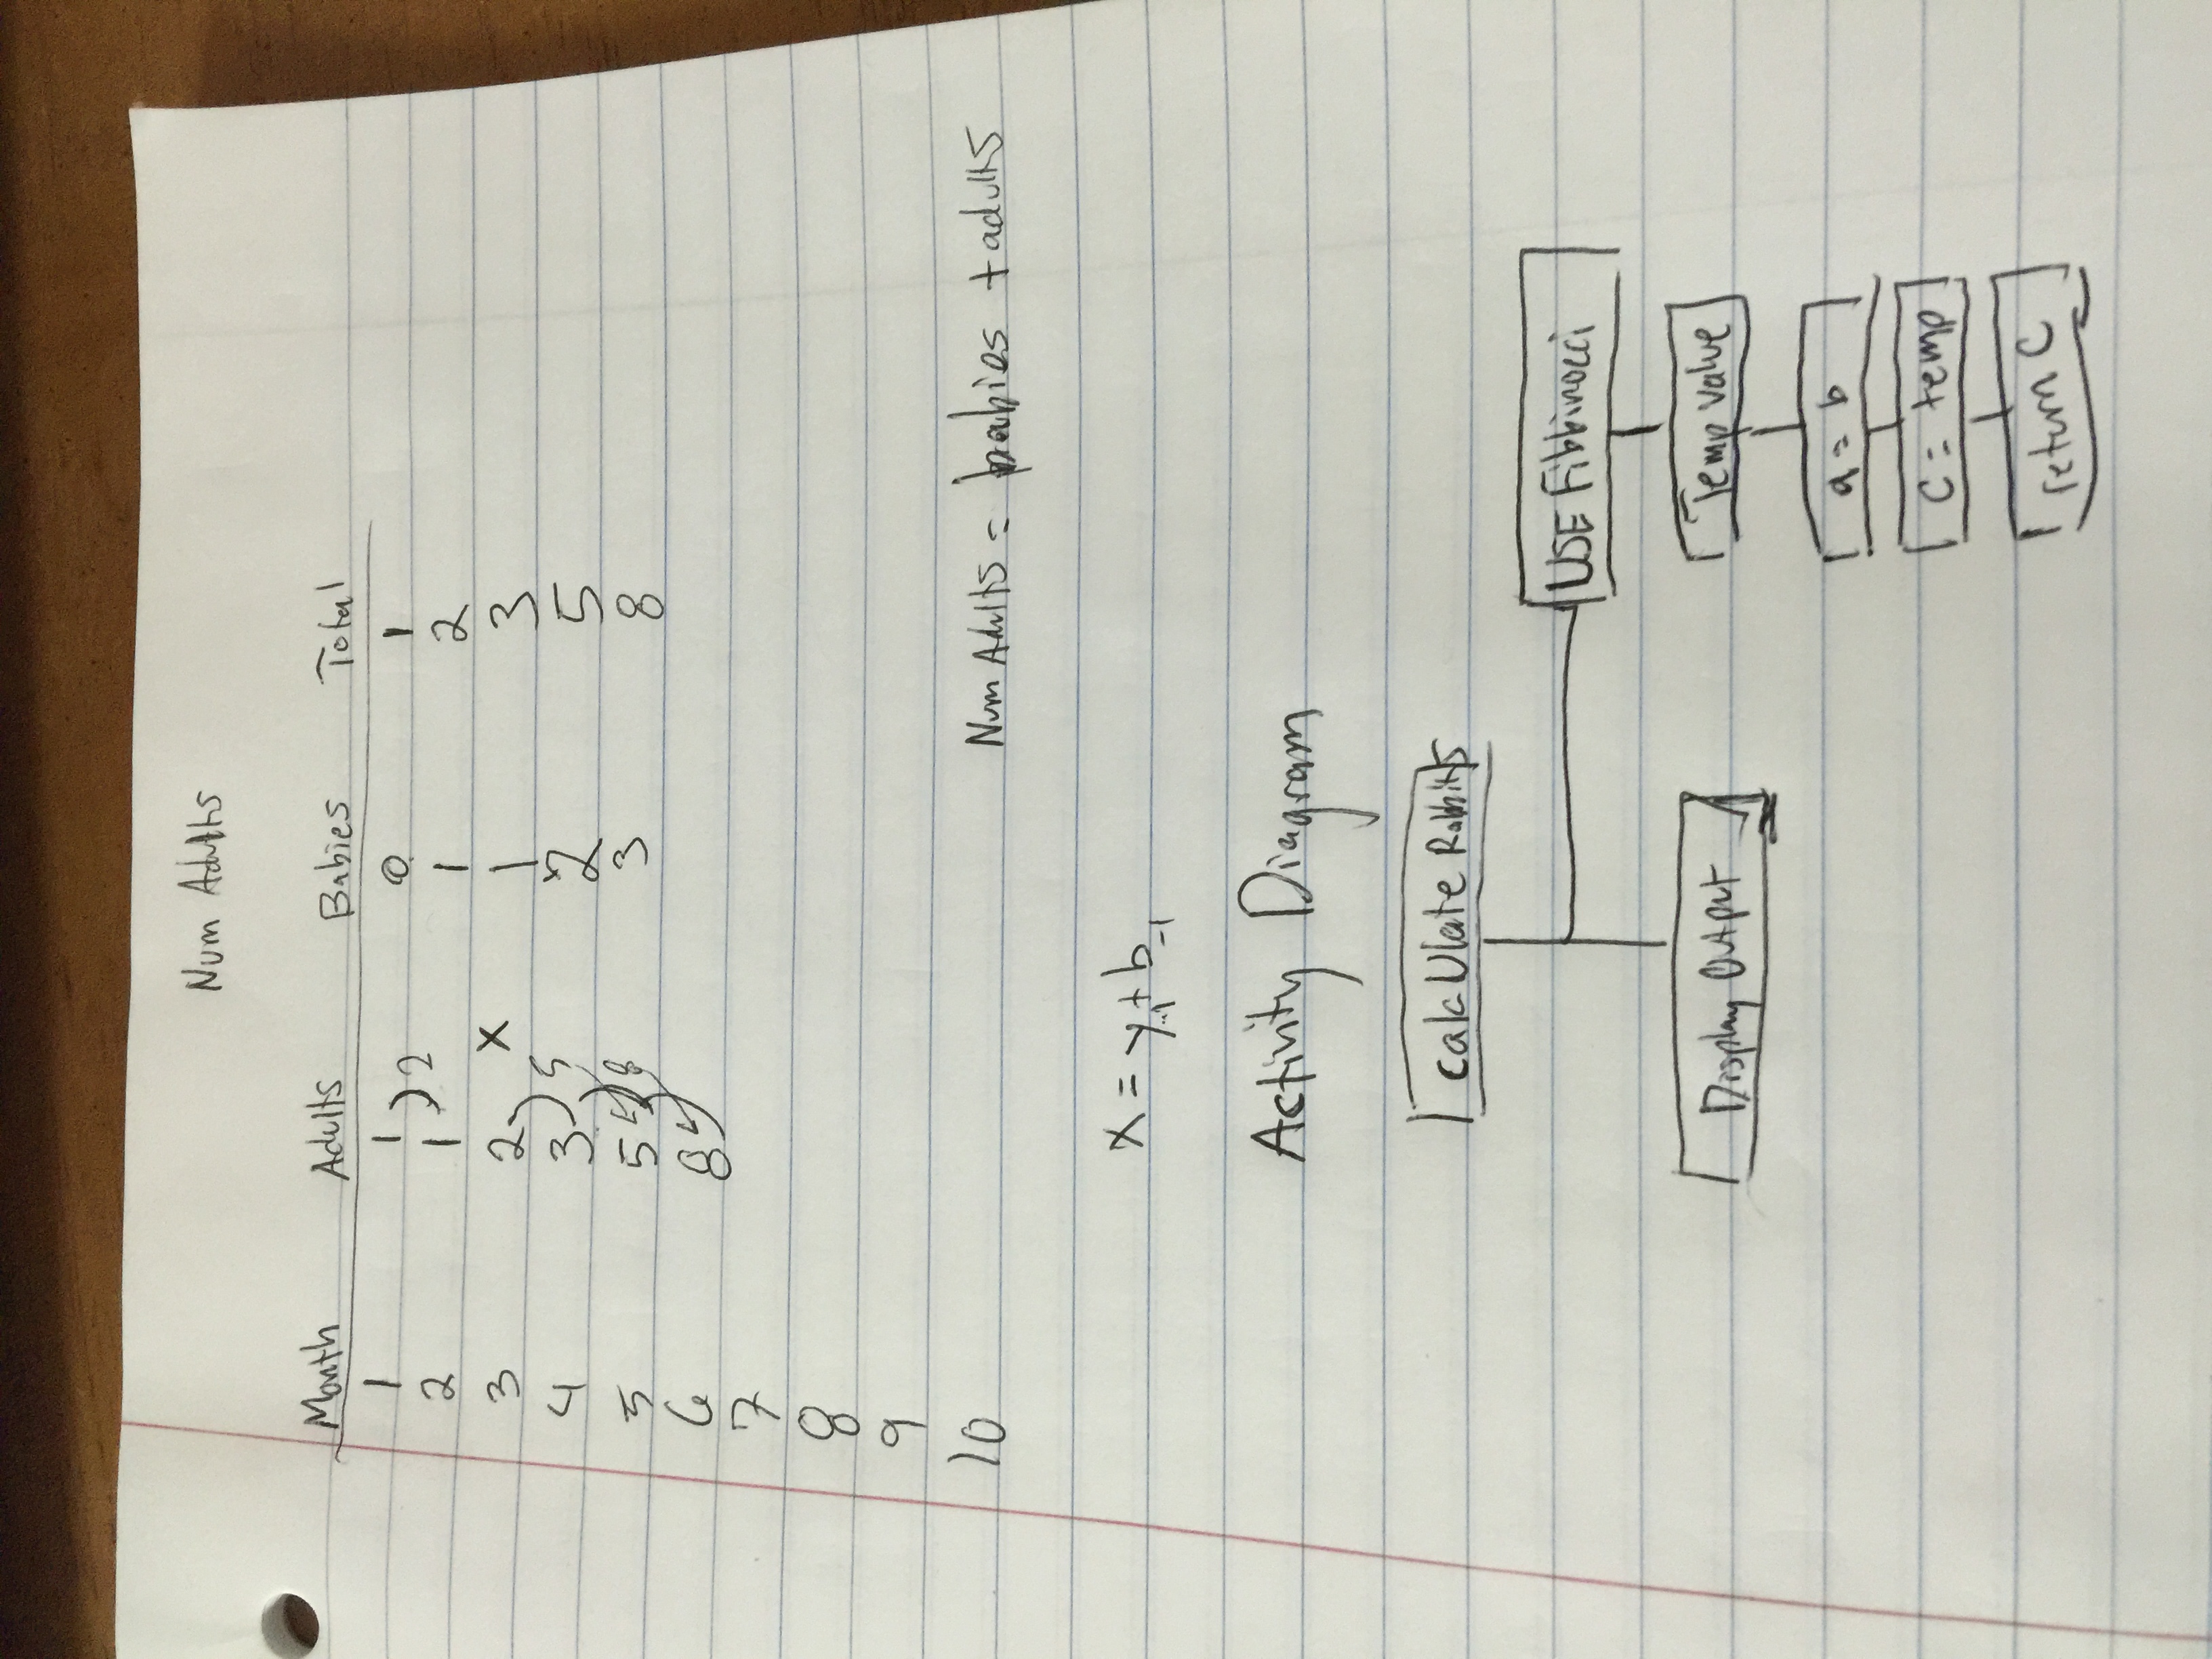 Num Adults
Month Adults Babies Total
1 1 0 1
)2
2 1 1 2
3 2 X 1 3
4 3 5 2 5
5 5 8 3 8
6 8
7
8
9
10
Num Adults = babies + adults
X = y-1 + b-1
Activity Diagram
calcUlate Rabbits
USE Fibbinocci
Display Output
Temp Value
a = b
C = temp
return C